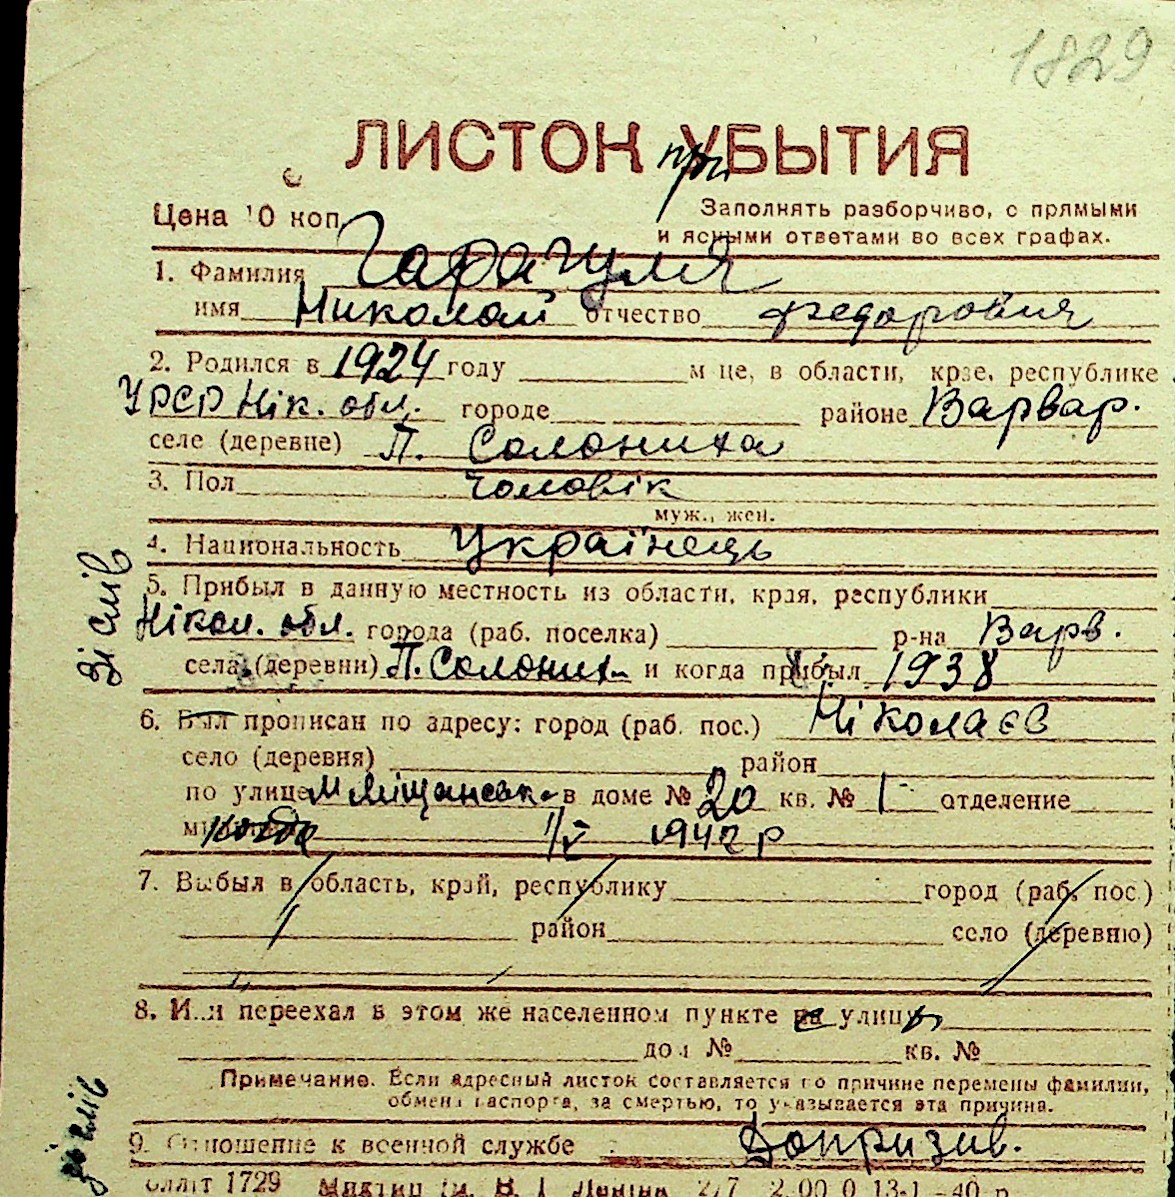 1829
ЛИСТОК при УБЫТИЯ
Цена 10 коп.
Заполнять разборчиво, с прямыми
и ясными ответами во всех графах.
1. Фамилия Гарагуля
имя Николай отчество Федорович
2. Родился в 1924 году м-це, в области, крае, республике
УРСР Нік. обл. городе районе Варвар.
селе (деревне) П. Солониха
3. Пол чоловік
муж., жен.
4. Национальность Українець
Зі слів
5. Прибыл в данную местность из области, края, республики
Нікол. обл. города (раб. поселка) р-на Варв.
села (деревни) П. Солоних и когда прибыл 1938
6. Был прописан по адресу: город (раб. пос.) Ніколаєв
село (деревня) район
по улице М Міщанськ в доме № 20 кв. № 1 отделение
когда 1/V 1942 р
7. Выбыл в область, край, республику город (раб. пос.)
район село (деревню)
8. Или переехал в этом же населенном пункте на улицу
дом № кв. №
Примечание. Если адресный листок составляется по причине перемены фамилии,
обмена паспорта, за смертью, то указывается эта причина.
зі слів
9. Отношение к военной службе Допризив.
1729 Ленина 2/7 2.00 0 13-1-40 р